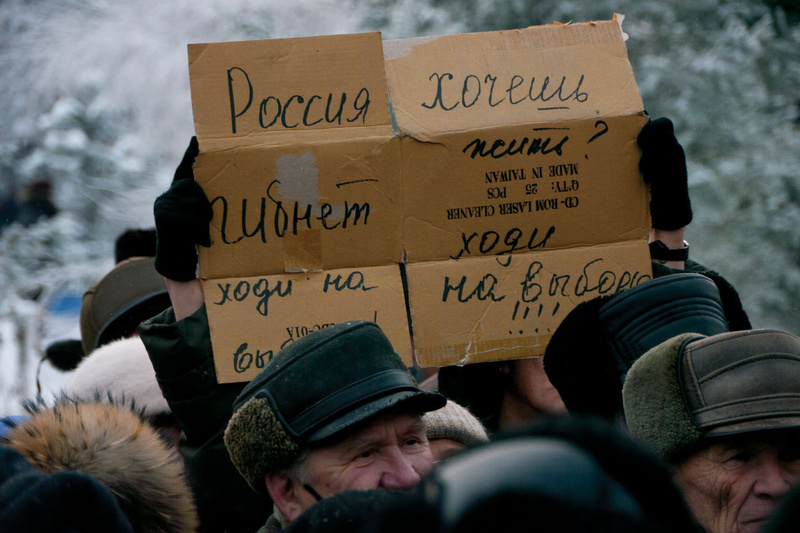 Россия
гибнет
ходи на
хочешь
жить?
CD-ROM LASER CLEANER
Q'TY: 25 PCS
MADE IN TAIWAN
ходи
на выборы
!!!!